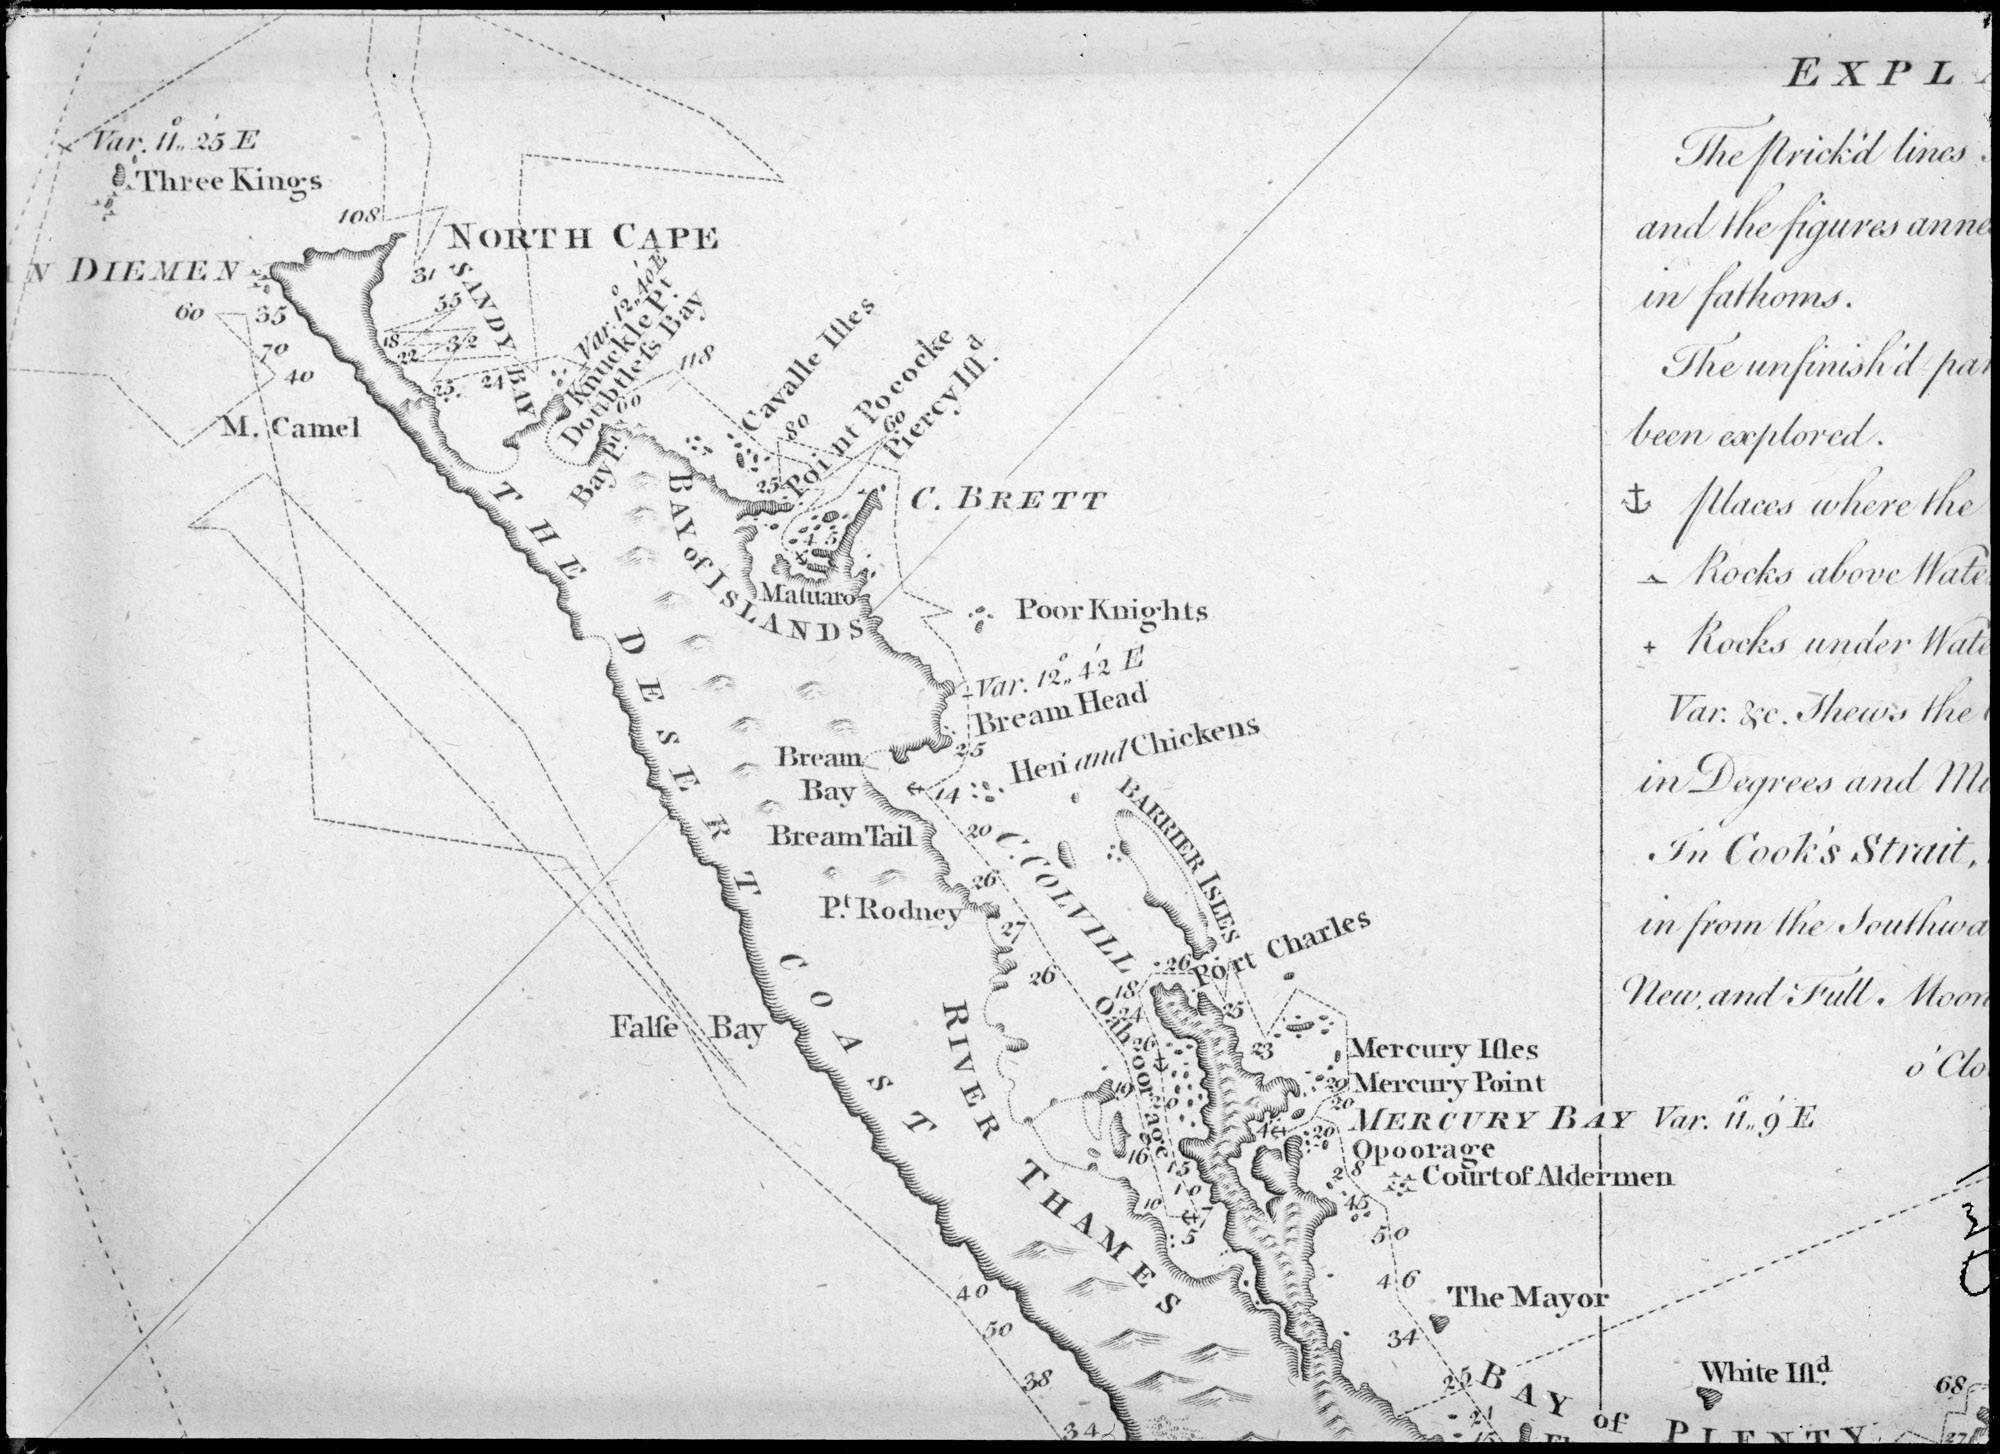 EXPL
The prick'd lines
and the figures anne
in fathoms.
The unfinish'd par
been explored.
places where the
Rocks above Wate
Rocks under Wate
Var. &c. shews the
in Degrees and Mi
In Cook's Strait,
in from the Southwa
New, and Full Moon
o'Clo
Var. 11° 25' E
Three Kings
108
NORTH CAPE
N DIEMEN
31
60
35
55
SANDY BAY
Var. 12° 40' E
Knuckle Pt.
Doubtless Bay
118
70
18
32
22
40
25
24
60
Cavalle Isles
80
Point Pococke
60
Piercy Isld.
M. Camel
Bay Pt.
25
C. BRETT
BAY of ISLANDS
4 5
Matuaro
THE DESERT COAST
Poor Knights
Var. 12° 42' E
Bream Head
25
Hen and Chickens
Bream
Bay
14
BARRIER ISLES
20
C. COLVILL
Bream Tail
26
Pt. Rodney
27
26
26
Port Charles
18
24
25
RIVER THAMES
Oahoorage
26
23
False Bay
Mercury Isles
19
20
29
Mercury Point
20
MERCURY BAY Var. 11° 9' E
4
20
Opoorage
16
15
28
Court of Aldermen
10
10
45
7
5
50
46
40
The Mayor
50
34
38
25
BAY of PLENTY
White Isld.
68
21
34
15
27